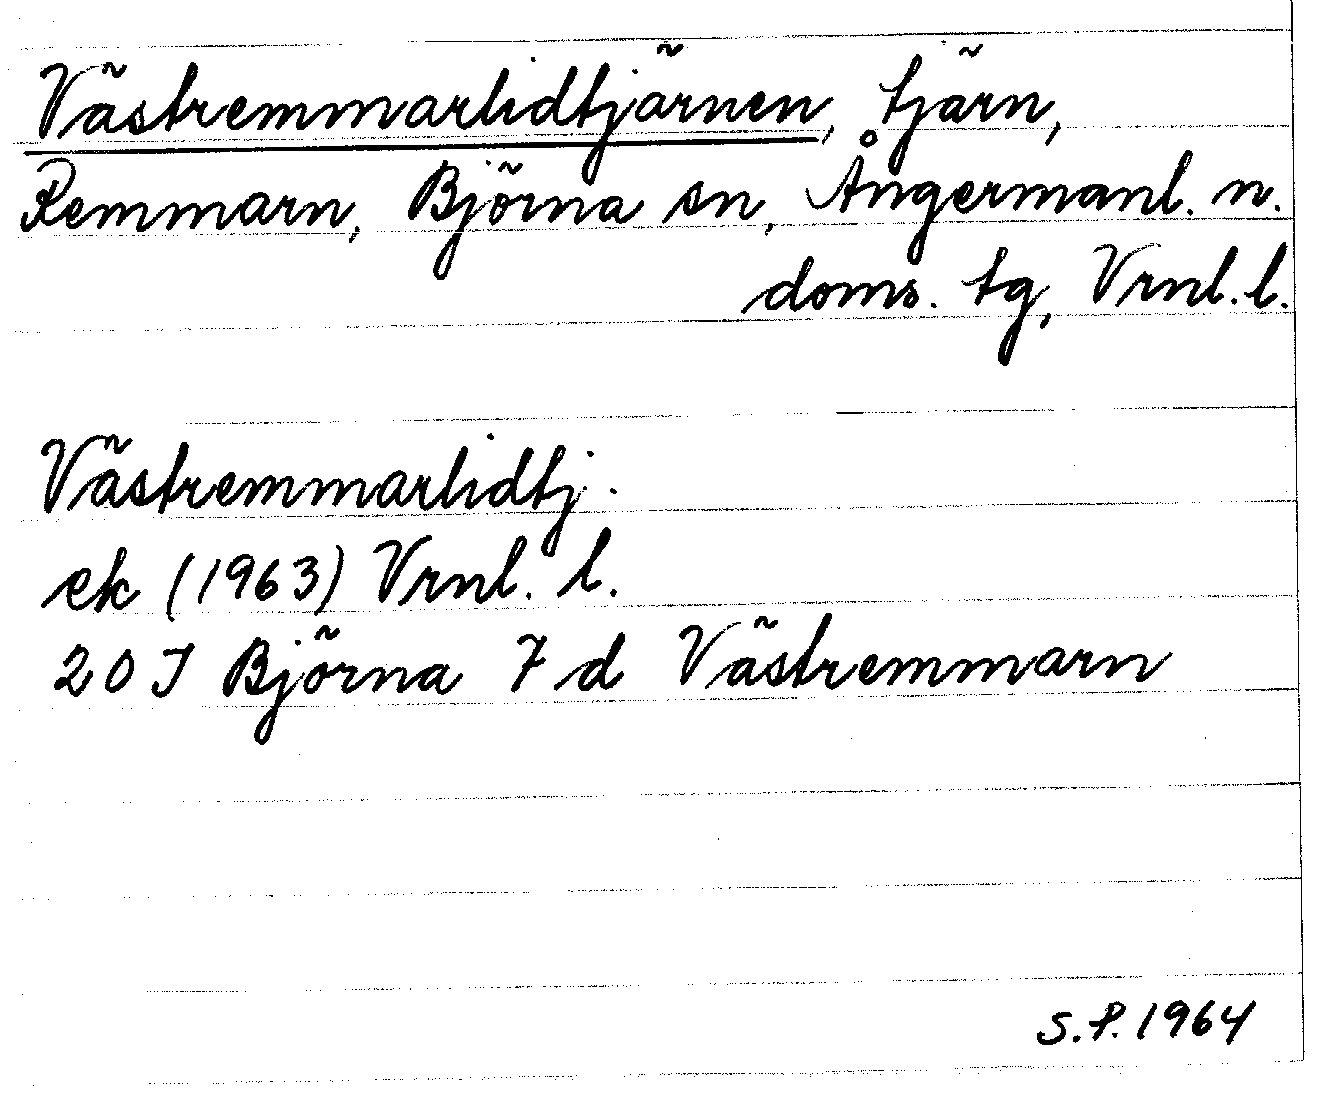 Västremmarlidtjärnen, tjärn,
Remmarn, Björna sn, Ångermanl. n.
doms. tg, Vrnl. l.
Västremmarlidtj.
ek (1963) Vrnl. l.
20 J Björna 7 d Västremmarn
S.P. 1964